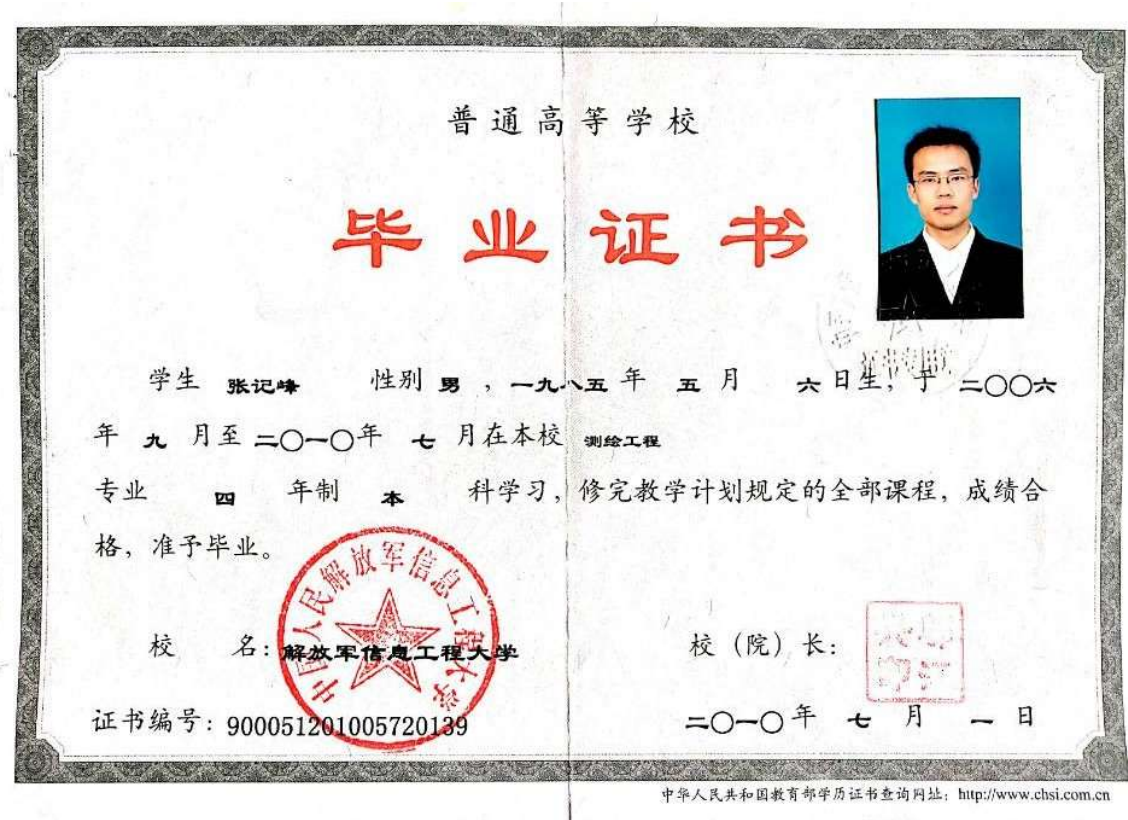 普通高等学校
毕业证书
学生 张记峰 性别 男 ，一九八五 年 五 月 六 日生，于 二〇〇六
年 九 月至 二〇一〇年 七 月在本校 测绘工程
专业 四 年制 本 科学习，修完教学计划规定的全部课程，成绩合
格，准予毕业。
中国人民解放军信息工程大学
校 名：解放军信息工程大学 校（院）长：
证书编号：900051201005720139 二〇一〇 年 七 月 一 日
中华人民共和国教育部学历证书查询网址：http://www.chsi.com.cn